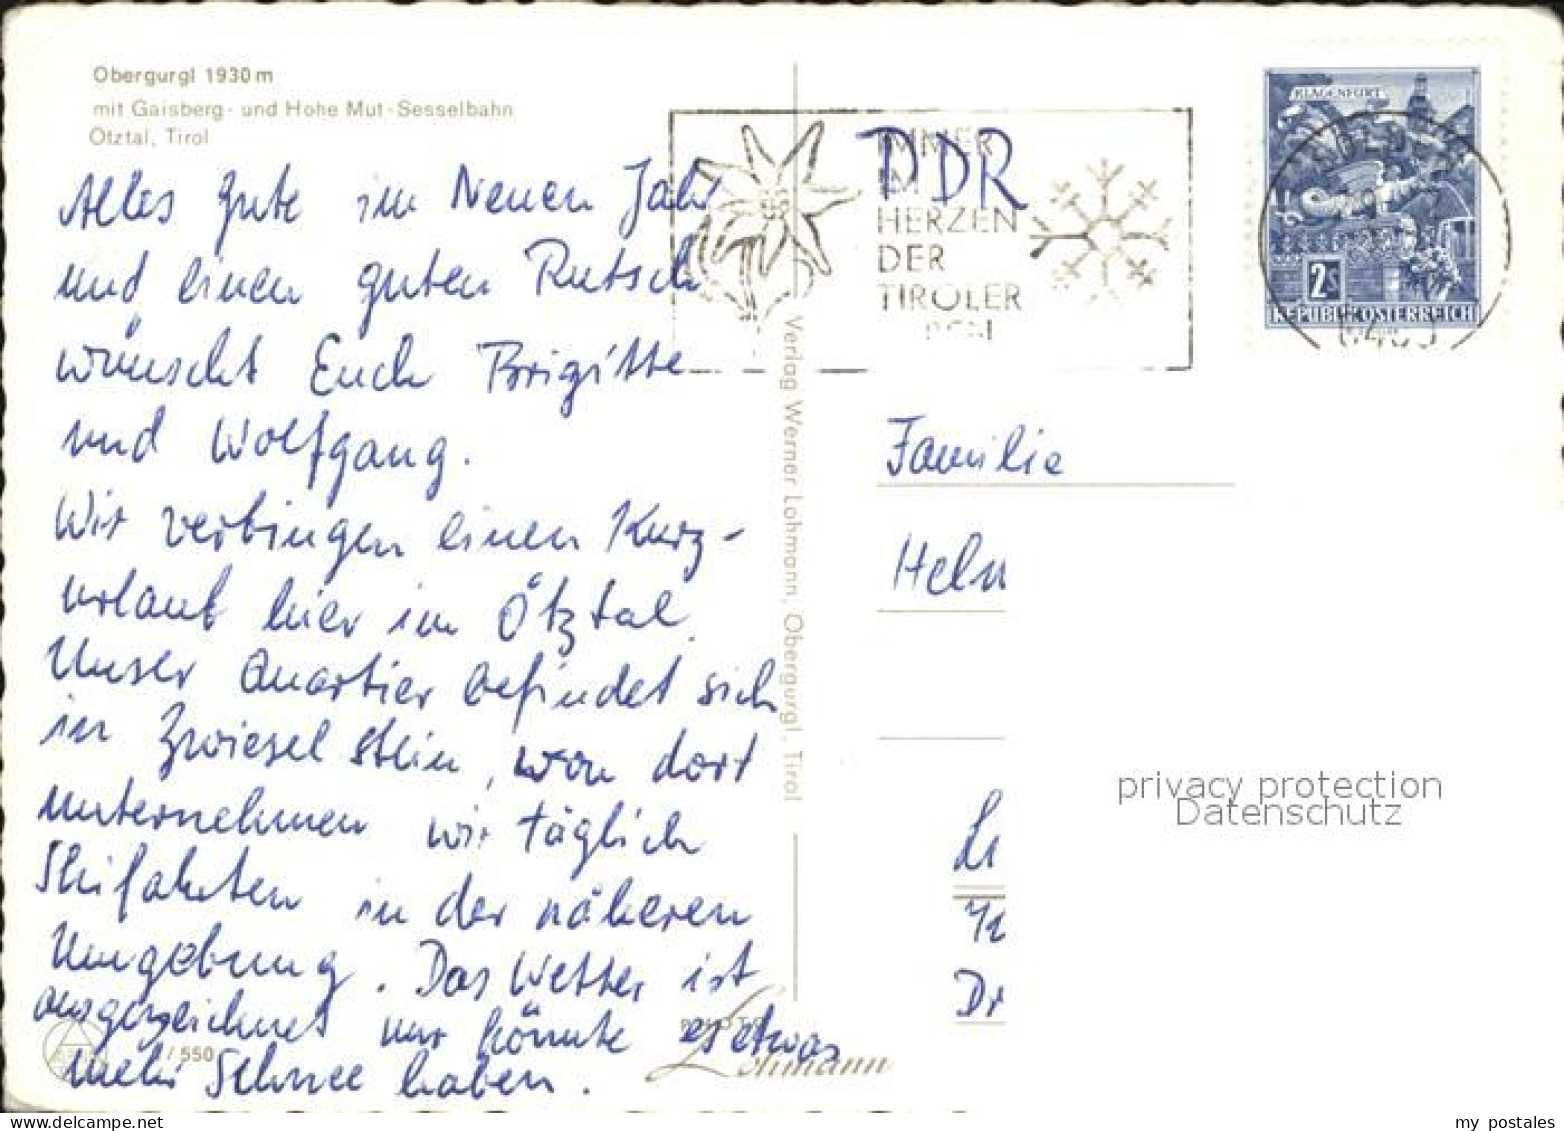 Obergurgl 1930 m
mit Gaisberg- und Hohe Mut-Sesselbahn
Ötztal, Tirol
Alles Gute im Neuen Jahr
und einen guten Rutsch
wünscht Euch Brigitte
und Wolfgang.
Wir verbingen einen Kurz-
urlaub hier im Ötztal.
Unser Quartier befindet sich
in Zwieselstein, von dort
unternehmen wir täglich
Skifahrten in der näheren
Umgebung. Das Wetter ist
ausgezeichnet nur könnte es etwas
mehr Schnee haben.
550
Verlag Werner Lohmann, Obergurgl, Tirol
PHOTO
Lohmann
IMMER
IM
HERZEN
DER
TIROLER
DDR
KLAGENFURT
2S
REPUBLIK ÖSTERREICH
Familie
Helm
Dr
privacy protection
Datenschutz
my postales